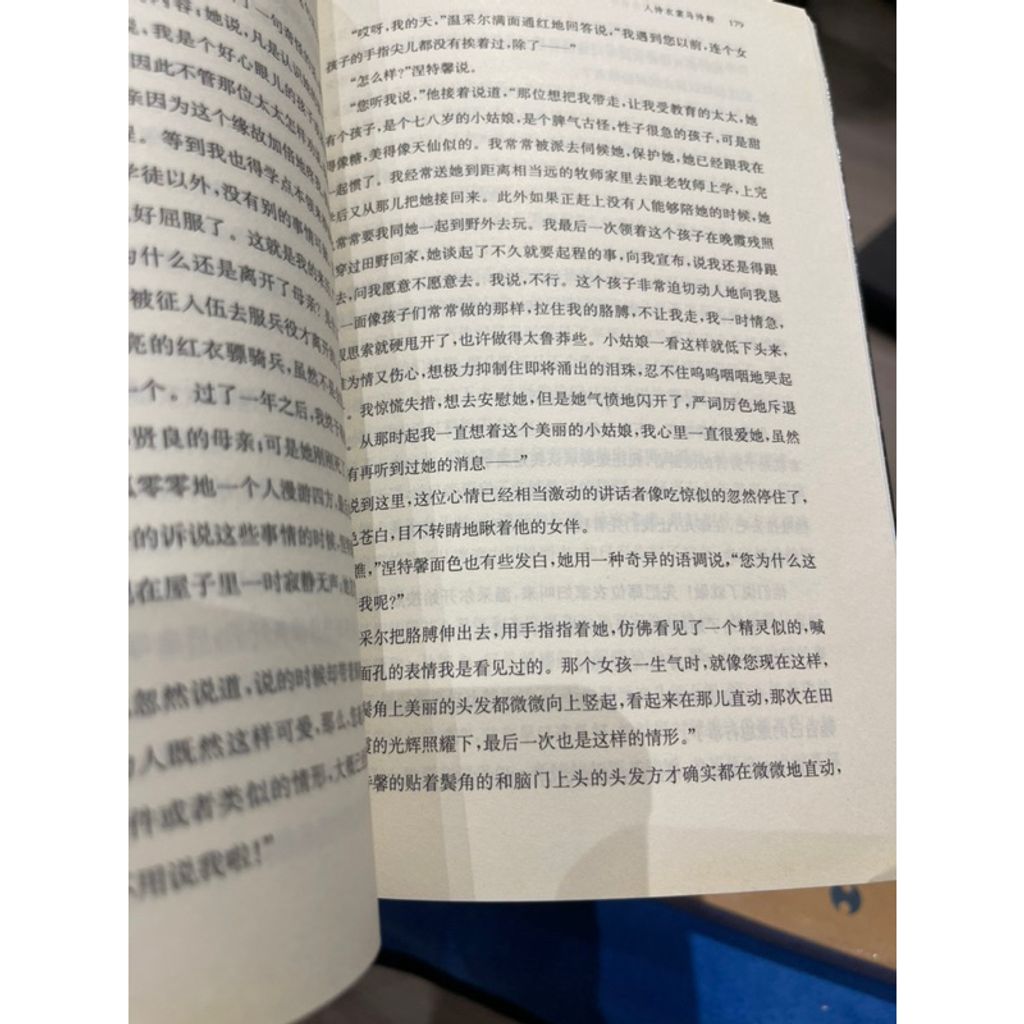 了一句奇怪的
内容；她说，凡是认识
，我是个好心眼儿的孩子
因此不管那位太太怎样
亲因为这个缘故加倍地
。等到我也得学点本
学徒以外，没有别的事情可
好屈服了。这就是我的
为什么还是离开了母亲？
被征入伍去服兵役才离开
亮的红衣骠骑兵，虽然不是
一个。过了一年之后，我终于
贤良的母亲；可是她刚刚死
零零地一个人漫游四方，
的诉说这些事情的时候，
在屋子里一时寂静无声；
忽然说道，说的时候却带
人既然这样可爱，那么，
件或者类似的情形，大概
不用说我啦！”
人恃衣裳马恃鞍 179
“哎呀，我的天，”温采尔满面通红地回答说，“我遇到您以前，连个女
孩子的手指尖儿都没有挨着过，除了——”
“怎么样？”涅特馨说。
“您听我说，”他接着说道，“那位想把我带走，让我受教育的太太，她
有个孩子，是个七八岁的小姑娘，是个脾气古怪，性子很急的孩子，可是甜
得像糖，美得像天仙似的。我常常被派去伺候她，保护她，她已经跟我在
一起惯了。我经常送她到距离相当远的牧师家里去跟老牧师上学，上完
学后又从那儿把她接回来。此外如果正赶上没有人能够陪她的时候，她
常常要我同她一起到野外去玩。我最后一次领着这个孩子在晚霞残照
穿过田野回家，她谈起了不久就要起程的事，向我宣布，说我还是得跟
去，问我愿意不愿意去。我说，不行。这个孩子非常迫切动人地向我恳
一面像孩子们常常做的那样，拉住我的胳膊，不让我走，我一时情急，
思索就硬甩开了，也许做得太鲁莽些。小姑娘一看这样就低下头来，
为情又伤心，想极力抑制住即将涌出的泪珠，忍不住呜呜咽咽地哭起
。我惊慌失措，想去安慰她，但是她气愤地闪开了，严词厉色地斥退
从那时起我一直想着这个美丽的小姑娘，我心里一直很爱她，虽然
有再听到过她的消息——”
说到这里，这位心情已经相当激动的讲话者像吃惊似的忽然停住了，
色苍白，目不转睛地瞅着他的女伴。
瞧，”涅特馨面色也有些发白，她用一种奇异的语调说，“您为什么这
我呢？”
采尔把胳膊伸出去，用手指指着她，仿佛看见了一个精灵似的，喊
面孔的表情我是看见过的。那个女孩一生气时，就像您现在这样，
鬓角上美丽的头发都微微向上竖起，看起来在那儿直动，那次在田
霞的光辉照耀下，最后一次也是这样的情形。”
馨的贴着鬓角的和脑门上头的头发方才确实都在微微地直动，